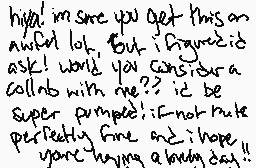 hiya! im sure you get this an
awful lot, but i figured id
ask! would you consider a
collab with me?? id be
super pumped! if not thats
perfectly fine and i hope
youre having a lovely day!!